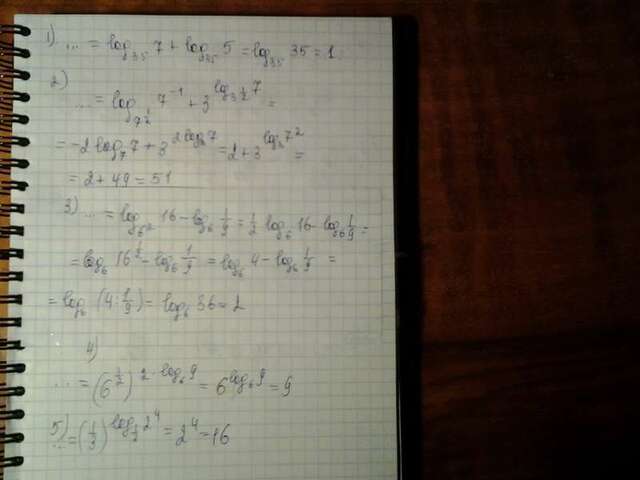 1) ... = log₃₅ 7 + log₃₅ 5 = log₃₅ 35 = 1
2)
... = log_{7^{1/2}} 7⁻¹ + 3^{log_{3^{1/2}} 7} =
= -2 log₇ 7 + 3^{2 log₃ 7} = 2 + 3^{log₃ 7²} =
= 2 + 49 = 51
3) ... = log_{6²} 16 - log₆ 1/9 = 1/2 log₆ 16 - log₆ 1/9 =
= log₆ 16^{1/2} - log₆ 1/9 = log₆ 4 - log₆ 1/9 =
= log₆ (4 : 1/9) = log₆ 36 = 2
4)
... = (6^{1/2})^{2 · log₆ 9} = 6^{log₆ 9} = 9
5) ... = (1/3)^{log_{1/3} 2⁴} = 2⁴ = 16